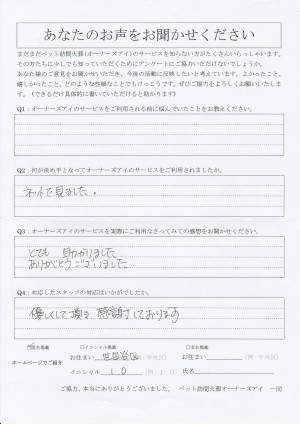 あなたのお声をお聞かせください
まだまだペット訪問火葬(オーナーズアイ)のサービスを知らない方がたくさんいらっしゃいます。
その方たちに少しでも知っていただくためにアンケートにご協力いただけないでしょうか。
あなた様のご意見をお聞かせいただき、今後の活動に反映したいと考えています。よかったこと、
嬉しかったこと、どのような些細なことでもけっこうです。ぜひご協力をよろしくお願いいたしま
す。(できるだけ具体的に書いていただけると助かります)
Q1:オーナーズアイのサービスをご利用される前に悩んでいたことをお教えください。
Q2:何が決め手となってオーナーズアイのサービスをご利用されましたか。
ネットで見ました。
Q3:オーナーズアイのサービスを実際にご利用なさってみての感想をお聞かせください。
とても 助かりました
ありがとうございました。
Q4:対応したスタッフの対応はいかがでしたか。
優しくして頂き 感謝しております
ホームページでご紹介
イニシャル掲載
実名掲載
お住まい 世田谷区 (例:中央区)
お住まい (例:中央区)
イニシャル I O (例:J H)
氏名
ご協力、本当にありがとうございました。 ペット訪問火葬オーナーズアイ 一同